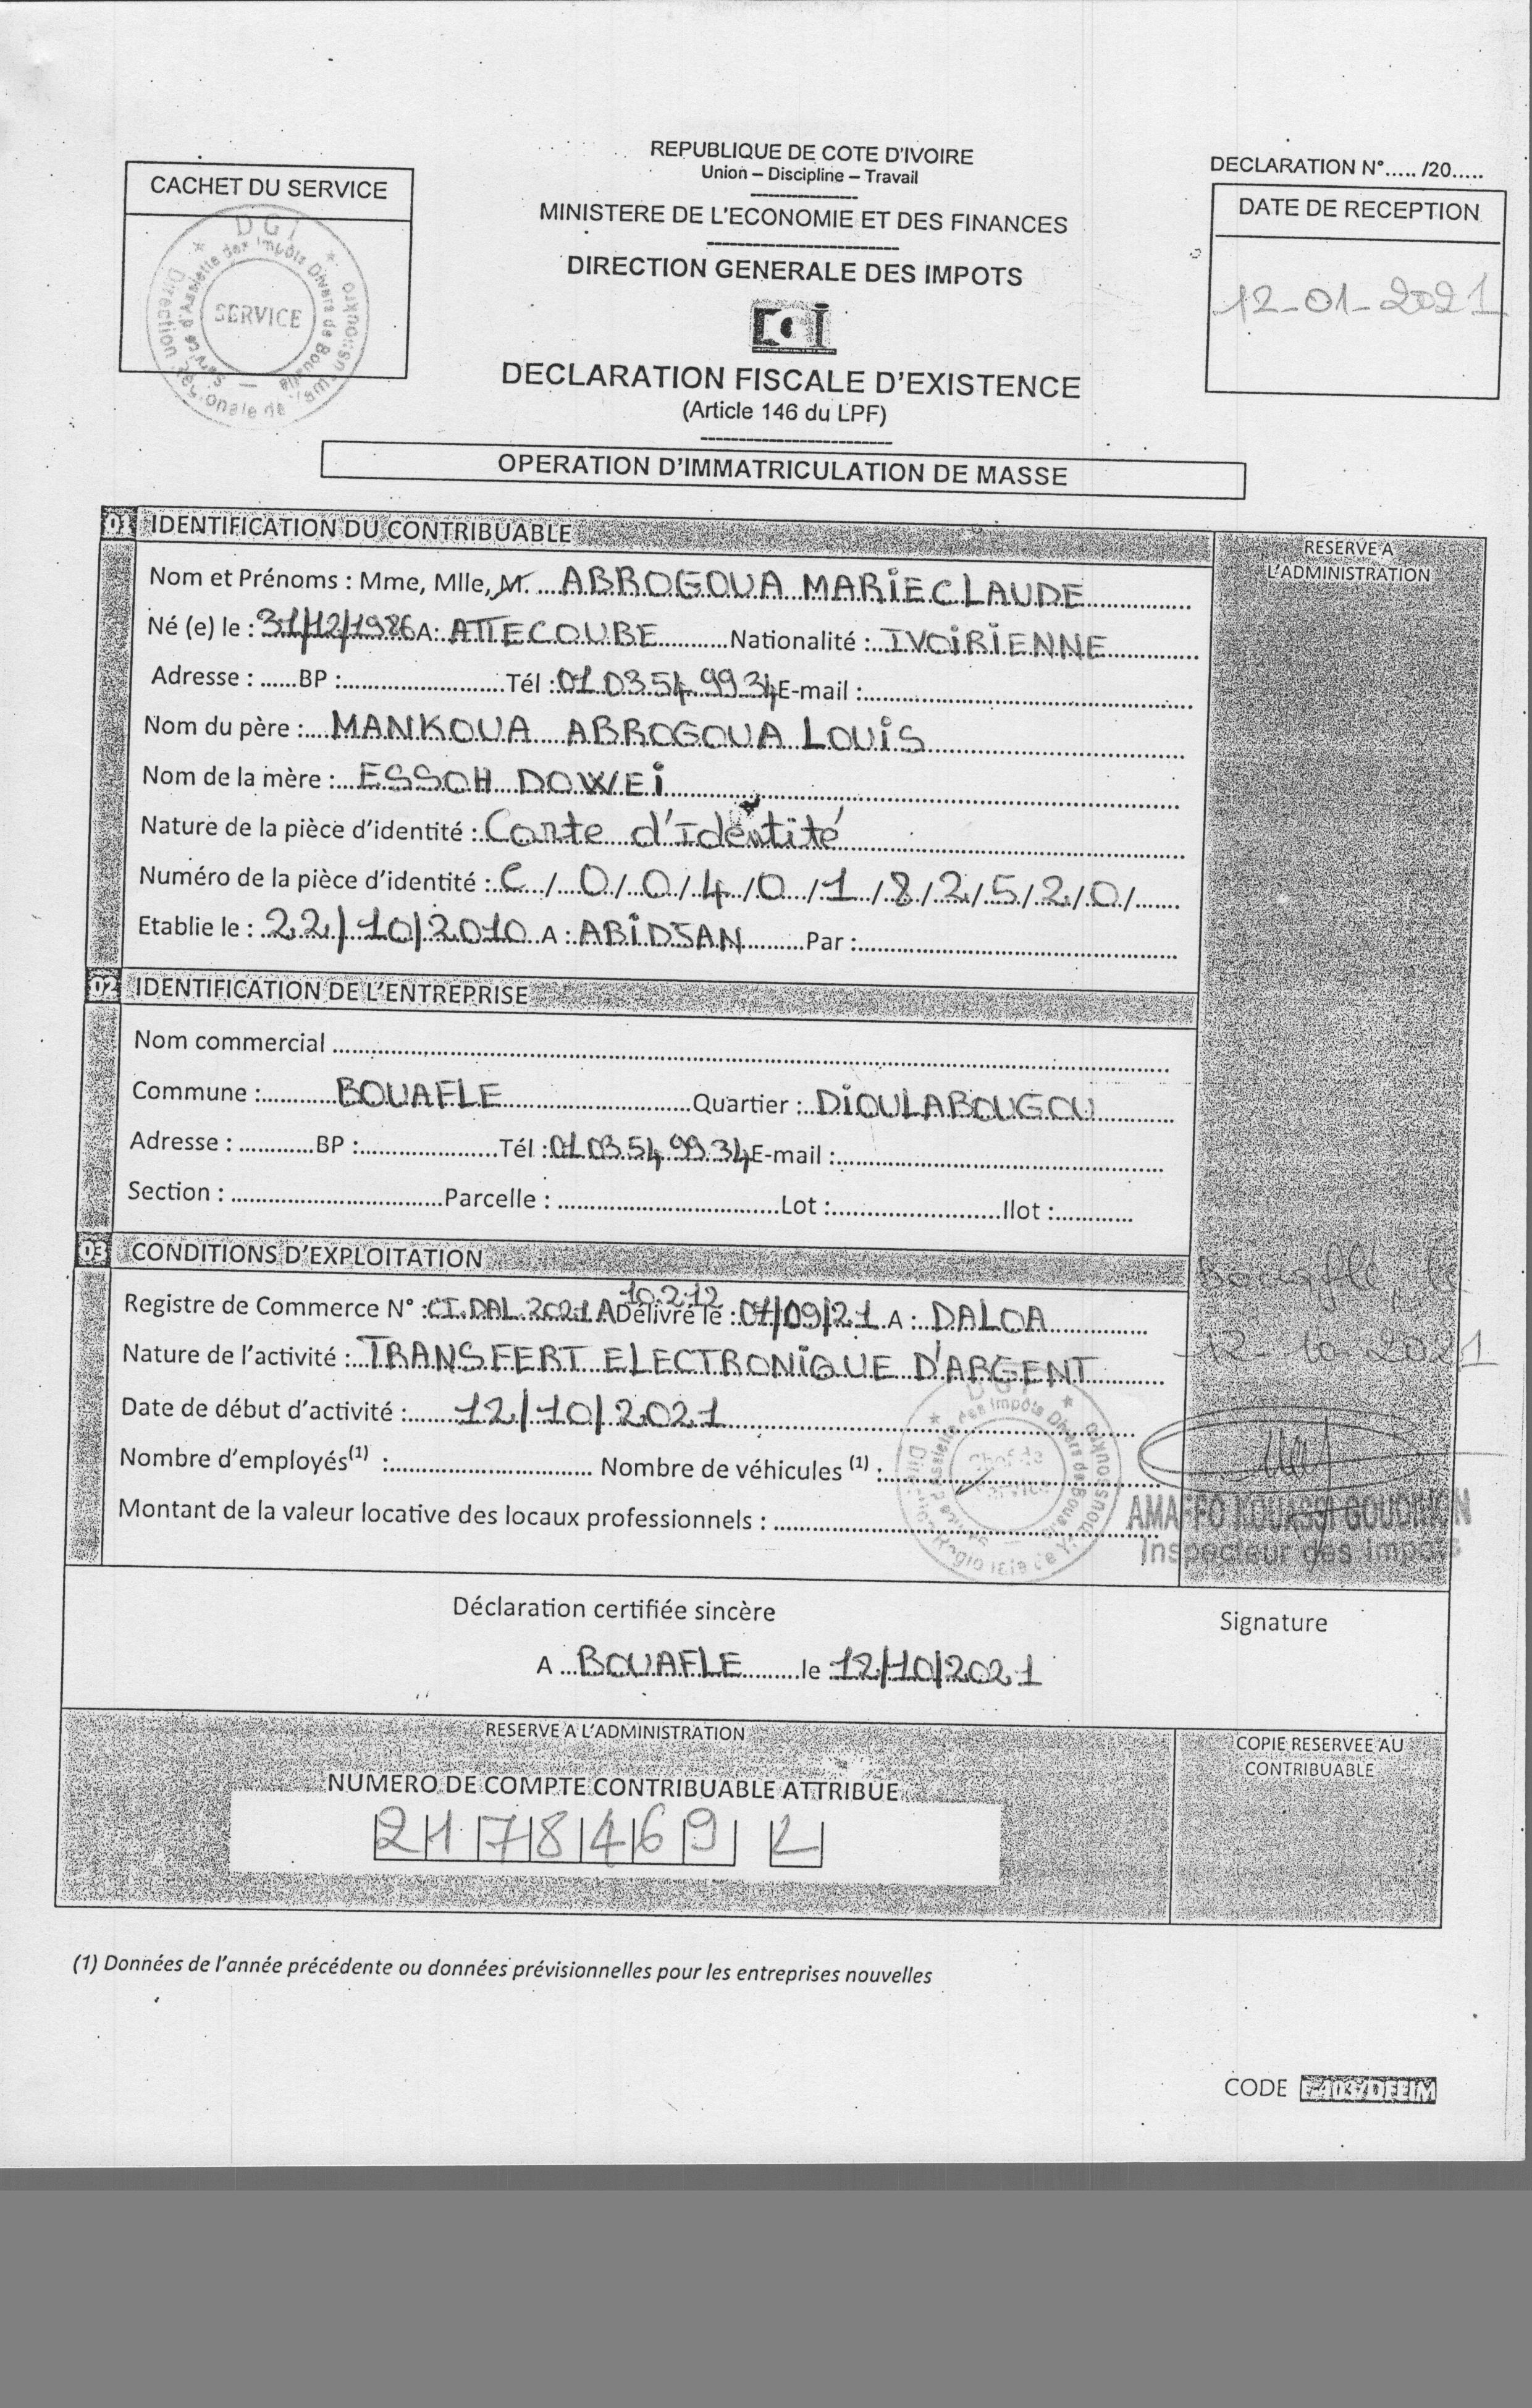 CACHET DU SERVICE
DGI
Service d'Assiette des Impôts Divers de Bouaflé
Direction Régionale de Yamoussoukro
SERVICE
REPUBLIQUE DE COTE D'IVOIRE
Union – Discipline – Travail
MINISTERE DE L'ECONOMIE ET DES FINANCES
DIRECTION GENERALE DES IMPOTS
DGI
DECLARATION FISCALE D'EXISTENCE
(Article 146 du LPF)
DECLARATION N°..... /20.....
DATE DE RECEPTION
12-01-2021
OPERATION D'IMMATRICULATION DE MASSE
01 IDENTIFICATION DU CONTRIBUABLE
RESERVE A
L'ADMINISTRATION
Nom et Prénoms : Mme, Mlle, M. ABROGOUA MARIE CLAUDE
Né (e) le : 31/12/1986 A: ATTECOUBE Nationalité : IVOIRIENNE
Adresse : ......BP :........................Tél : 01 03 54 99 34 E-mail :........................
Nom du père : MANKOUA ABROGOUA LOUIS
Nom de la mère : ESSOH DOWEI
Nature de la pièce d'identité : Carte d'Identité
Numéro de la pièce d'identité : C / 0 / 0 / 4 / 0 / 1 / 8 / 2 / 5 / 2 / 0 /
Etablie le : 22/10/2010 A : ABIDJAN Par :........................
02 IDENTIFICATION DE L'ENTREPRISE
Nom commercial ........................
Commune : BOUAFLE Quartier : DIOULABOUGOU
Adresse : ............BP :.....................Tél : 01 03 54 99 34 E-mail :........................
Section : ........................Parcelle : ........................Lot :........................Ilot :............
03 CONDITIONS D'EXPLOITATION
Registre de Commerce N° : CI.DAL.2021 A 10.212 Délivré le : 07/09/21 A : DALOA
Nature de l'activité : TRANSFERT ELECTRONIQUE D'ARGENT
Date de début d'activité : 12/10/2021
Nombre d'employés(1) :........................ Nombre de véhicules (1) :........................
Montant de la valeur locative des locaux professionnels : ........................
DGI
Service d'Assiette des Impôts Divers de Bouaflé
Direction Régionale de Yamoussoukro
Chef de
Service
Bouaflé, le
12-10-2021
AMAFFO KOUASSI
Inspecteur des Impôts
Déclaration certifiée sincère
Signature
A BOUAFLE le 12/10/2021
RESERVE A L'ADMINISTRATION
NUMERO DE COMPTE CONTRIBUABLE ATTRIBUE
2 1 7 8 4 6 9 L
COPIE RESERVEE AU
CONTRIBUABLE
(1) Données de l'année précédente ou données prévisionnelles pour les entreprises nouvelles
CODE E-103/DFEIM